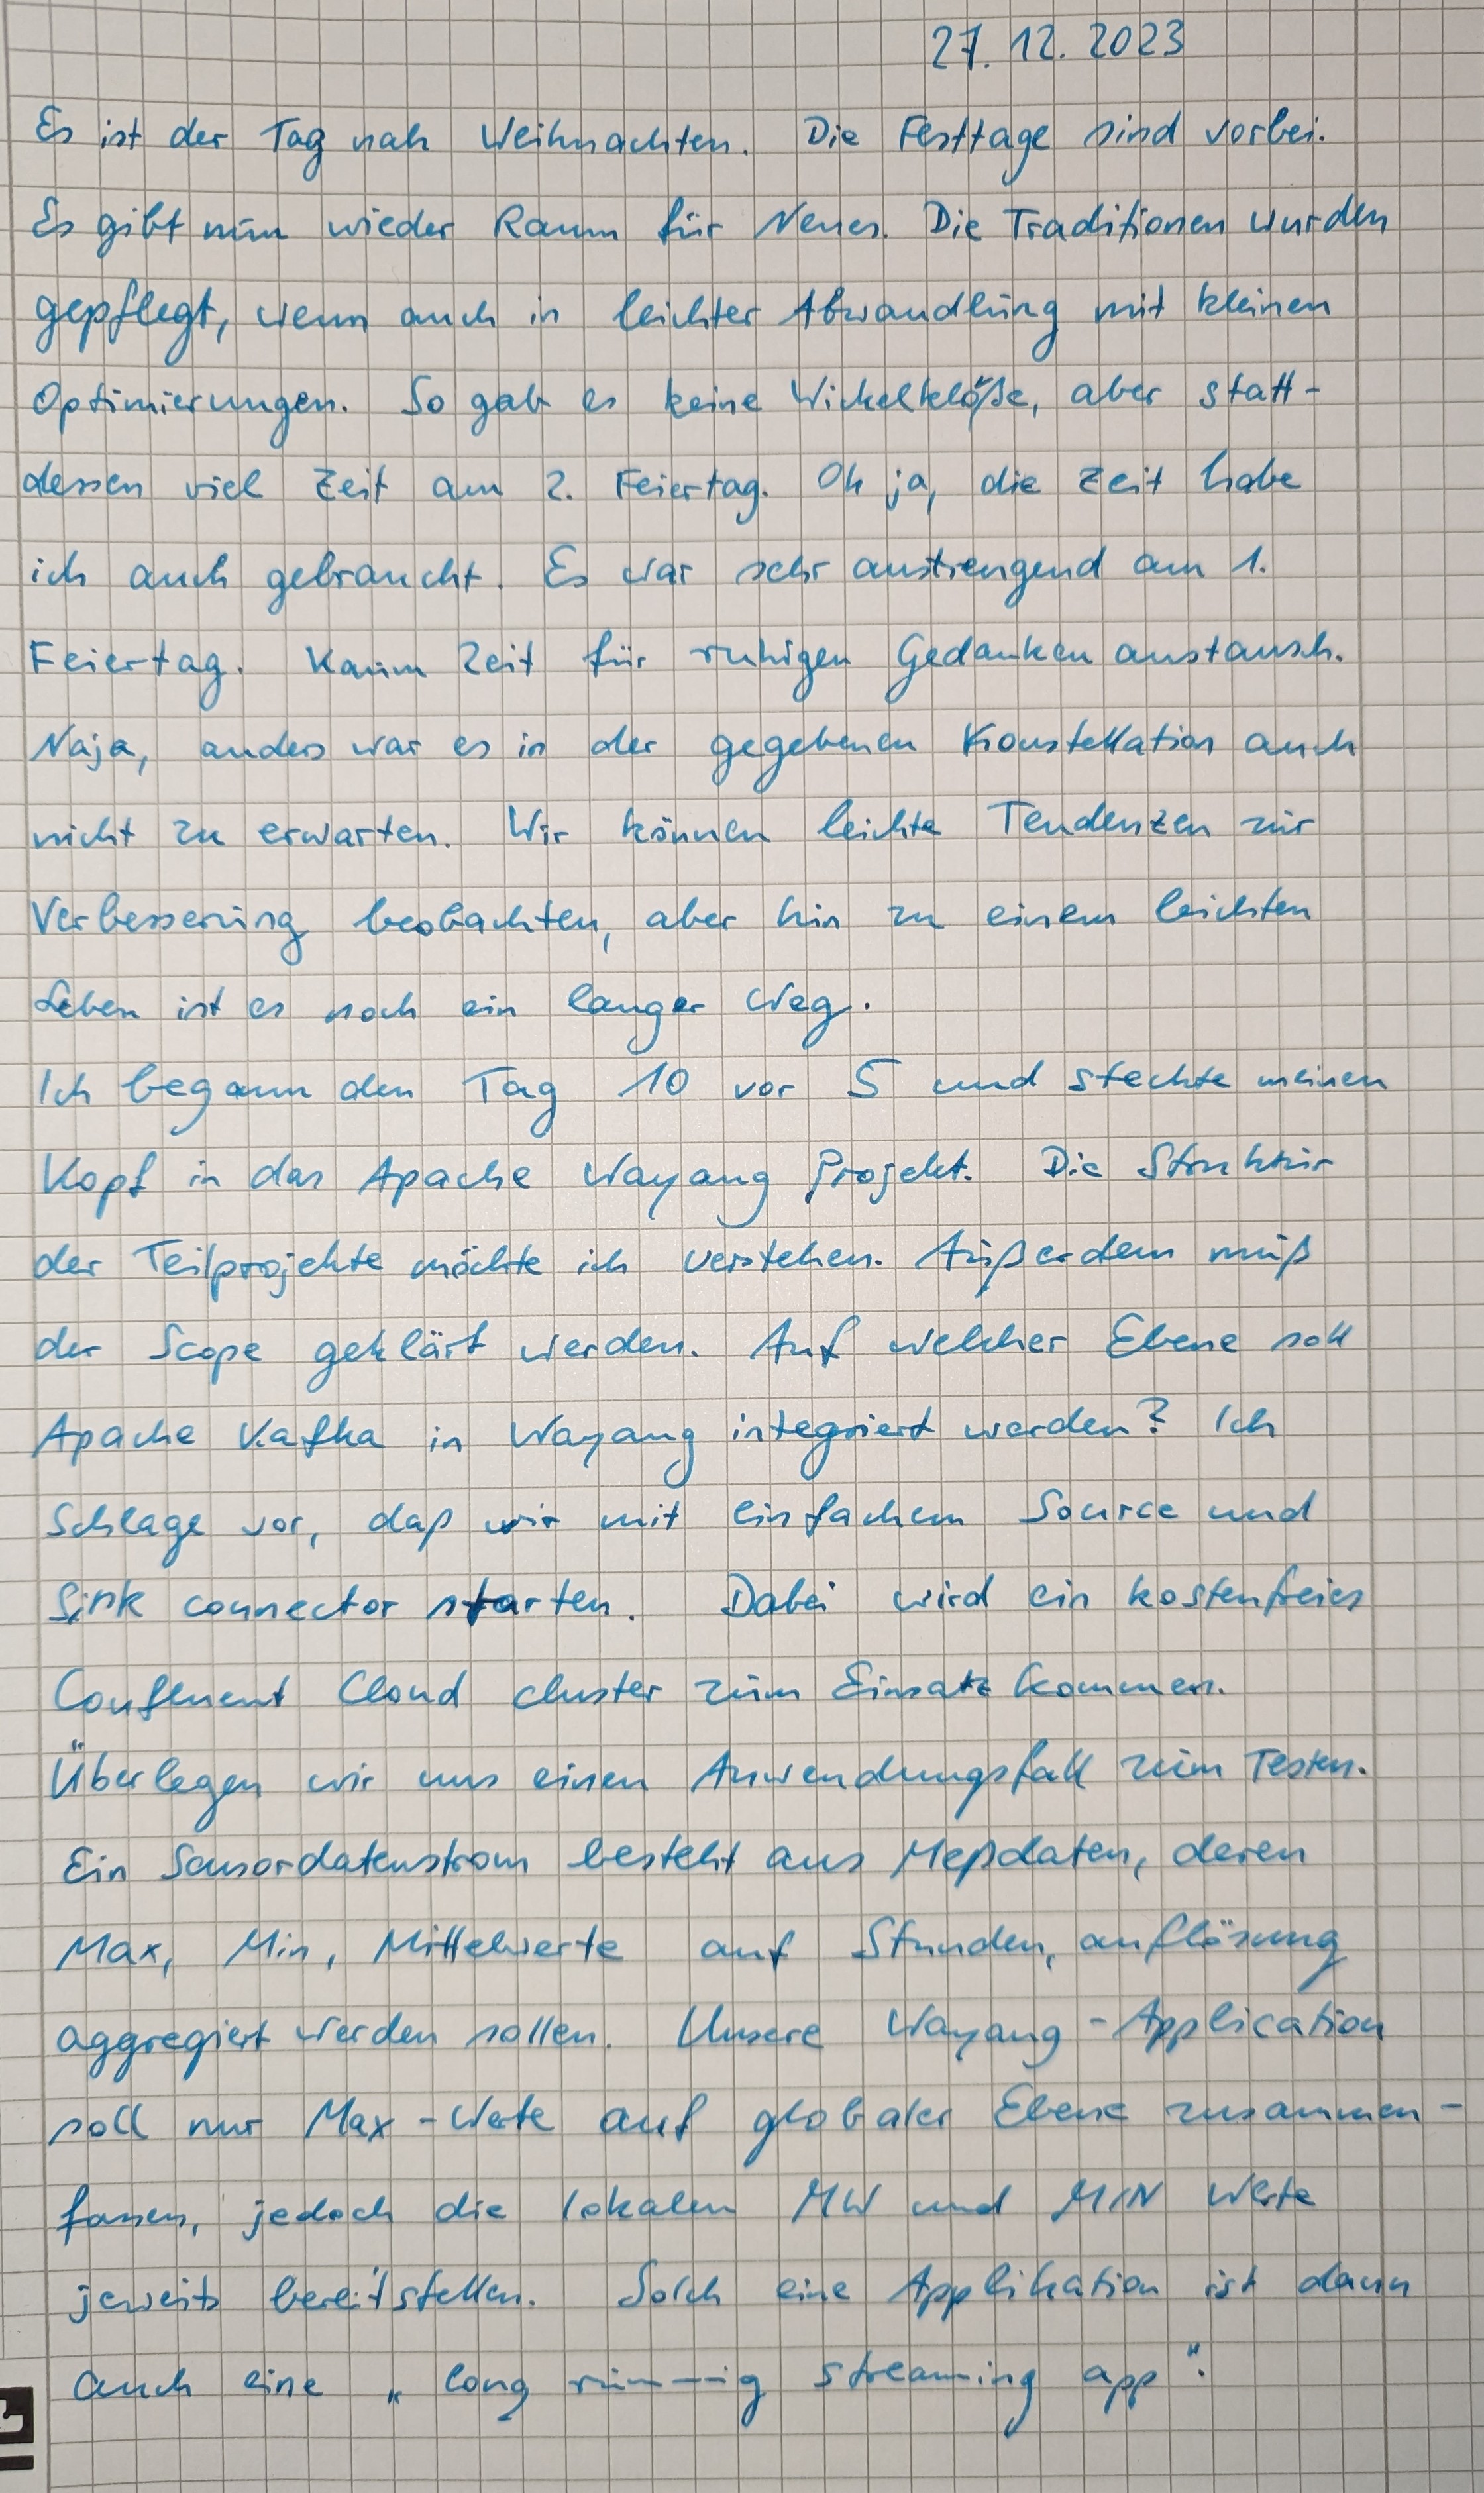 27. 12. 2023
Es ist der Tag nach Weihnachten. Die Festtage sind vorbei.
Es gibt nun wieder Raum für Neues. Die Traditionen wurden
gepflegt, wenn auch in leichter Abwandlung mit kleinen
Optimierungen. So gab es keine Wickelklöße, aber statt-
dessen viel Zeit am 2. Feiertag. Oh ja, die Zeit habe
ich auch gebraucht. Es war sehr anstrengend am 1.
Feiertag. Kaum Zeit für ruhigen Gedankenaustausch.
Naja, anders war es in der gegebenen Konstellation auch
nicht zu erwarten. Wir können leichte Tendenzen zur
Verbesserung beobachten, aber hin zu einem leichten
Leben ist es noch ein langer Weg.
Ich begann den Tag 10 vor 5 und steckte meinen
Kopf in das Apache Wayang Projekt. Die Struktur
der Teilprojekte möchte ich verstehen. Außerdem muß
der Scope geklärt werden. Auf welcher Ebene soll
Apache Kafka in Wayang integriert werden? Ich
Schlage vor, daß wir mit einfachem Source und
Sink connector starten. Dabei wird ein kostenfreies
Confluent Cloud cluster zum Einsatz kommen.
Überlegen wir uns einen Anwendungsfall zum Testen.
Ein Sensordatenstrom besteht aus Meßdaten, deren
Max, Min, Mittelwerte auf Stunden, auflösung
aggregiert werden sollen. Unsere Wayang-Application
soll nur Max-Werte auf globaler Ebene zusammen-
fassen, jedoch die lokalen MW und MIN Werte
jeweils bereitstellen. Solch eine Applikation ist dann
auch eine „long running streaming app“.